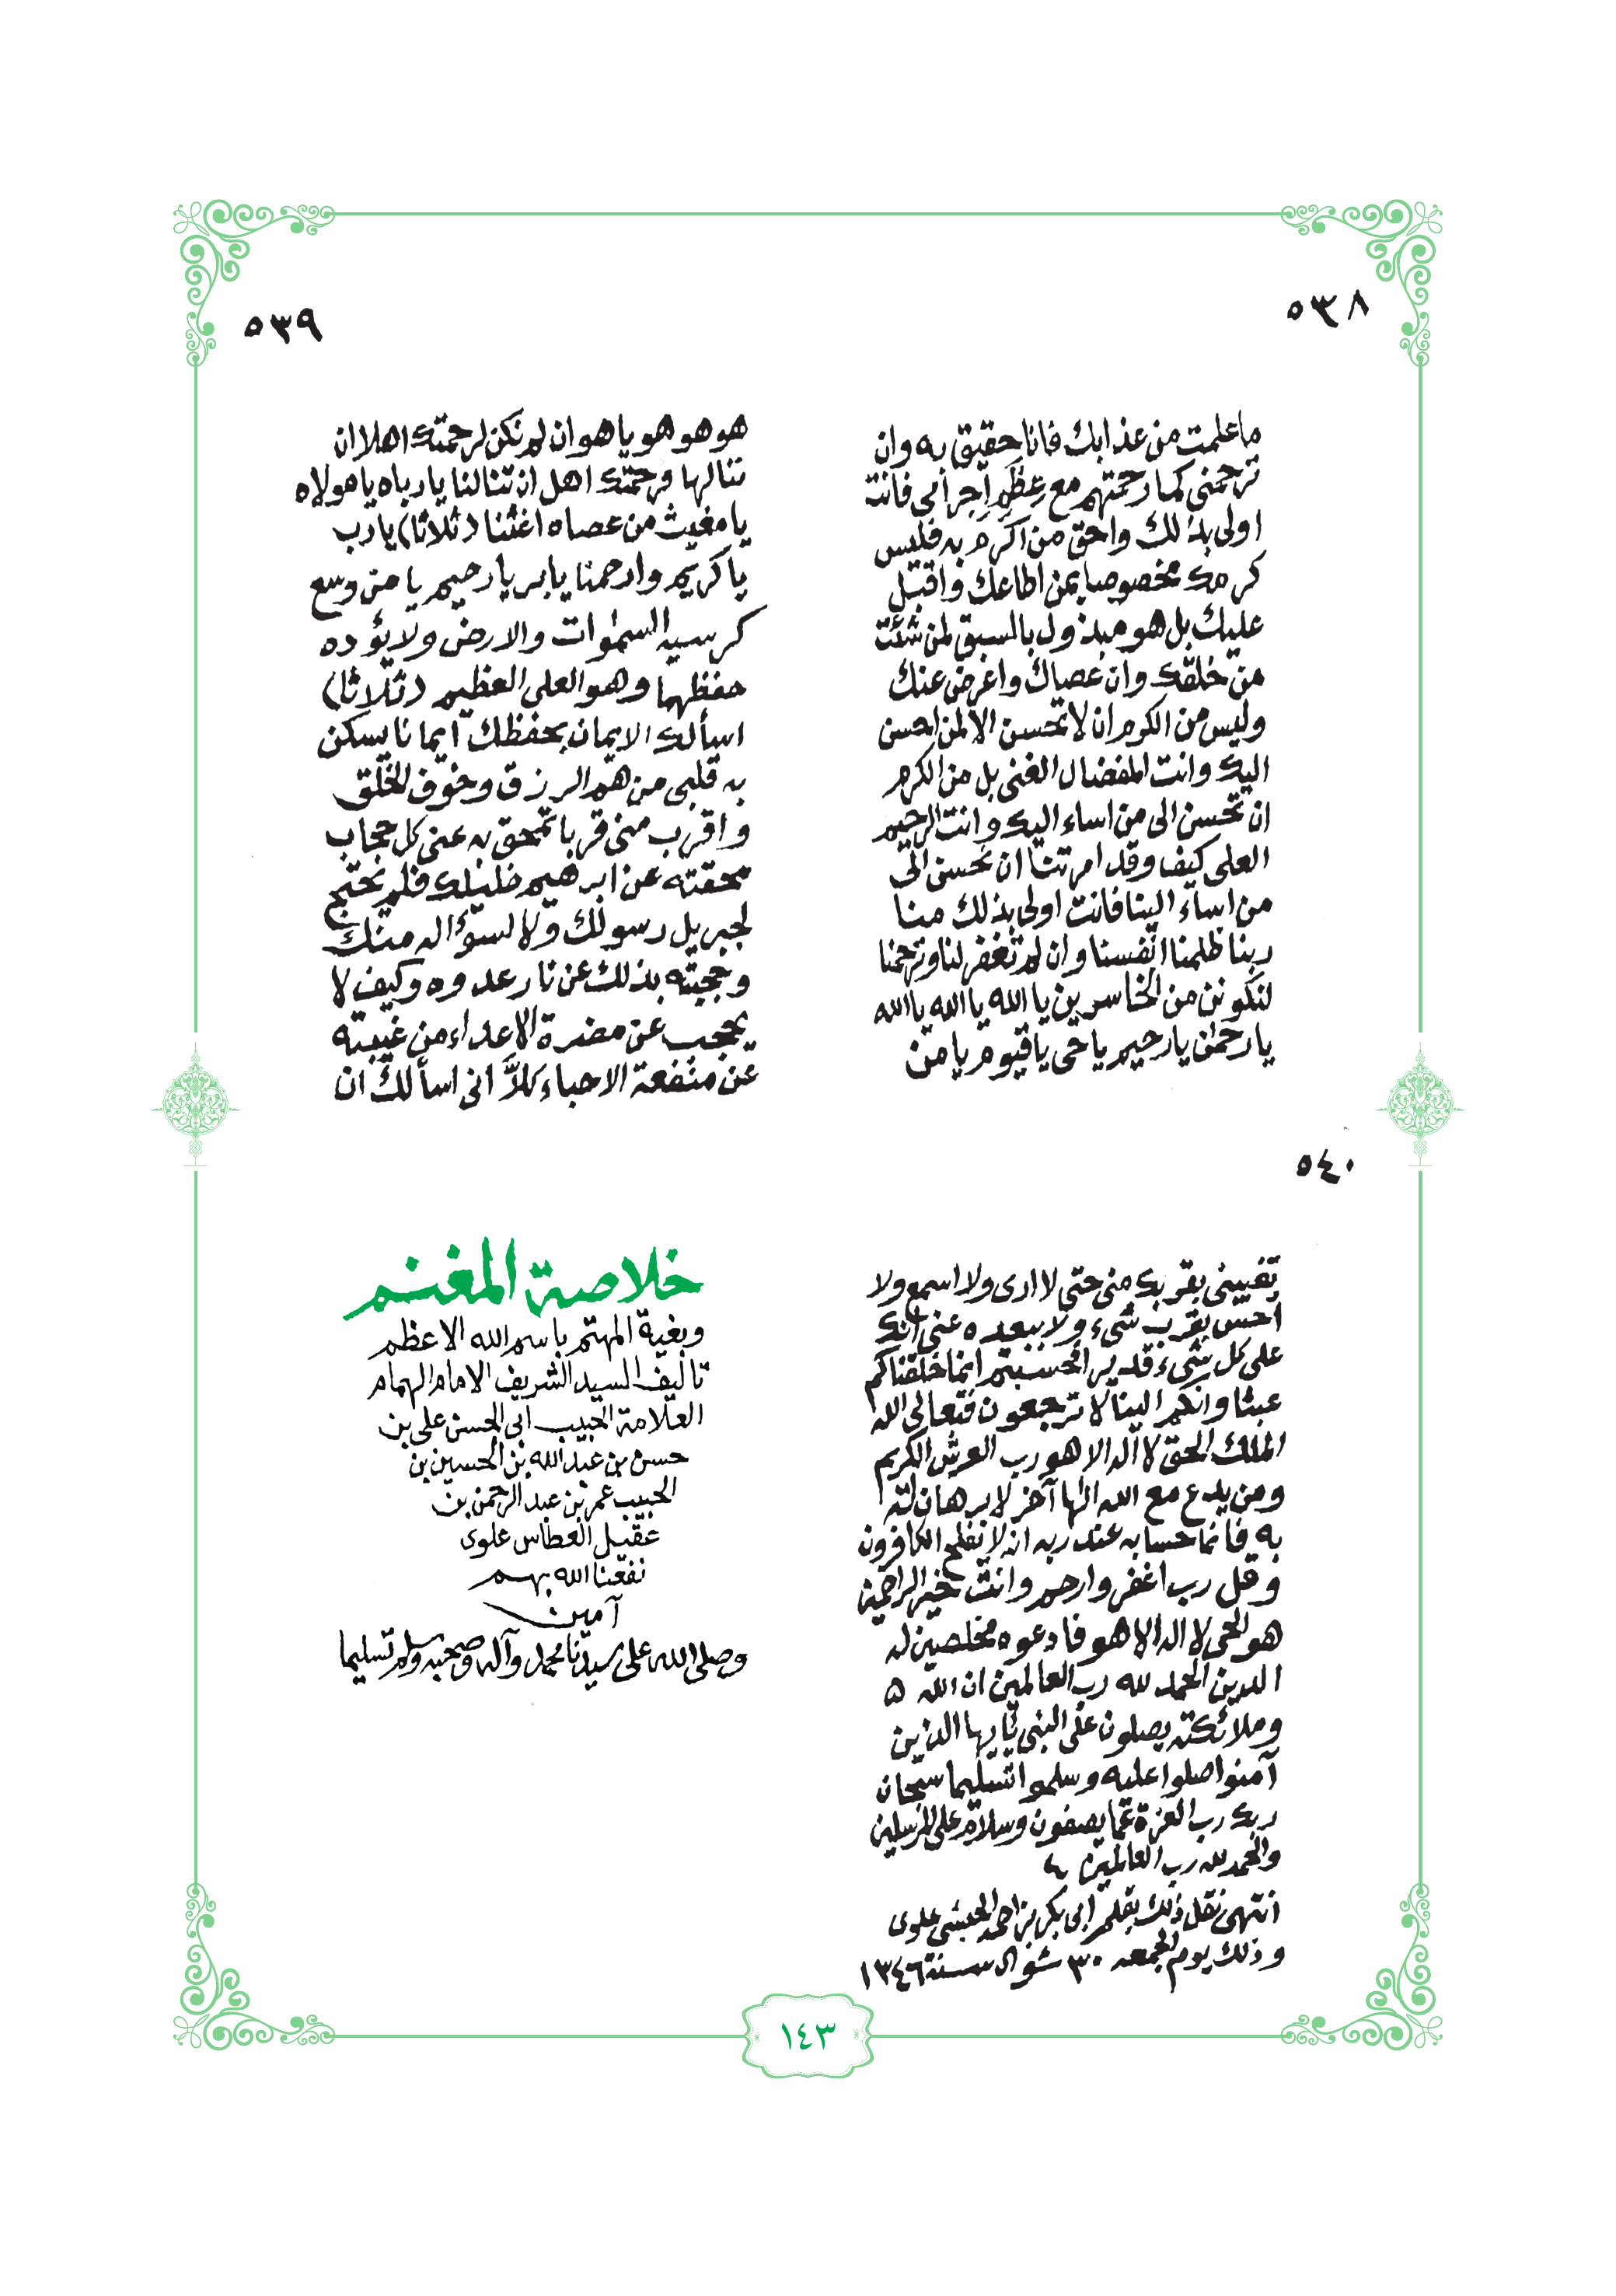 ٥٣٨
ما علمت من عذابك فانا حقيق به وان
ترحمني كما رحمتهم مع عظم اجرامي فانت
اولى بذلك واحق من اكرم به فليس
كرمك مخصوصا بمن اطاعك واقبل
عليك بل هو مبذول بالسبق لمن شئت
من خلقك وان عصاك واعرض عنك
وليس من الكرم ان لا تحسن الا لمن احسن
اليك وانت المفضال الغني بل من الكرم
ان تحسن الى من اساء اليك وانت الرحيم
العلي كيف وقد امرتنا ان نحسن الى
من اساء الينا فانت اولى بذلك منا
ربنا ظلمنا انفسنا وان لم تغفر لنا وترحمنا
لنكونن من الخاسرين يا الله يا الله يا الله
يا رحمن يا رحيم يا حي يا قيوم يا من
٥٣٩
هو هو هو يا هو ان لم نكن لرحمتك اهلا ان
ننالها فرحمتك اهل ان تنالنا يا رباه يا مولاه
يا مغيث من عصاه اغثنا (ثلاثا) يا رب
يا كريم وارحمنا يا بر يا رحيم يا من وسع
كرسيه السموات والارض ولا يؤده
حفظهما وهو العلي العظيم (ثلاثا)
اسألك الايمان بحفظك ايمانا يسكن
به قلبي من هم الرزق وخوف الخلق
واقرب مني قربا تمحق به عني كل حجاب
محقته عن ابرهيم خليلك فلم يحتج
لجبريل رسولك ولا لسؤاله منك
وحجبته بذلك عن نار عدوه وكيف لا
يحجب عن مضرة الاعداء من غيبته
عن منفعة الاحباء كلا اني اسألك ان
٥٤٠
تغيبني بقربك مني حتى لا ارى ولا اسمع ولا
احس بقرب شيء ولا ببعده عني انك
على كل شيء قدير افحسبتم انما خلقناكم
عبثا وانكم الينا لا ترجعون فتعالى الله
الملك الحق لا اله الا هو رب العرش الكريم
ومن يدع مع الله الها آخر لا برهان له
به فانما حسابه عند ربه انه لا يفلح الكافرون
وقل رب اغفر وارحم وانت خير الراحمين
هو الحي لا اله الا هو فادعوه مخلصين له
الدين الحمد لله رب العالمين ان الله
وملائكته يصلون على النبي يايها الذين
آمنوا صلوا عليه وسلموا تسليما سبحان
ربك رب العزة عما يصفون وسلام على المرسلين
والحمد لله رب العالمين
انتهى نقل ذلك بقلم ابي بكر بن احمد الحبشي علوي
وذلك يوم الجمعه ٣٠ شوال سنة ١٣٤٦
خلاصة المغنم
وبغية المهتم باسم الله الاعظم
تاليف السيد الشريف الامام الهمام
العلامة الحبيب ابي الحسن علي بن
حسن بن عبد الله بن الحسين بن
الحبيب عمر بن عبد الرحمن بن
عقيل العطاس علوي
نفعنا الله بهم
آمين
وصلى الله على سيدنا محمد وآله وصحبه وسلم تسليما
١٤٣